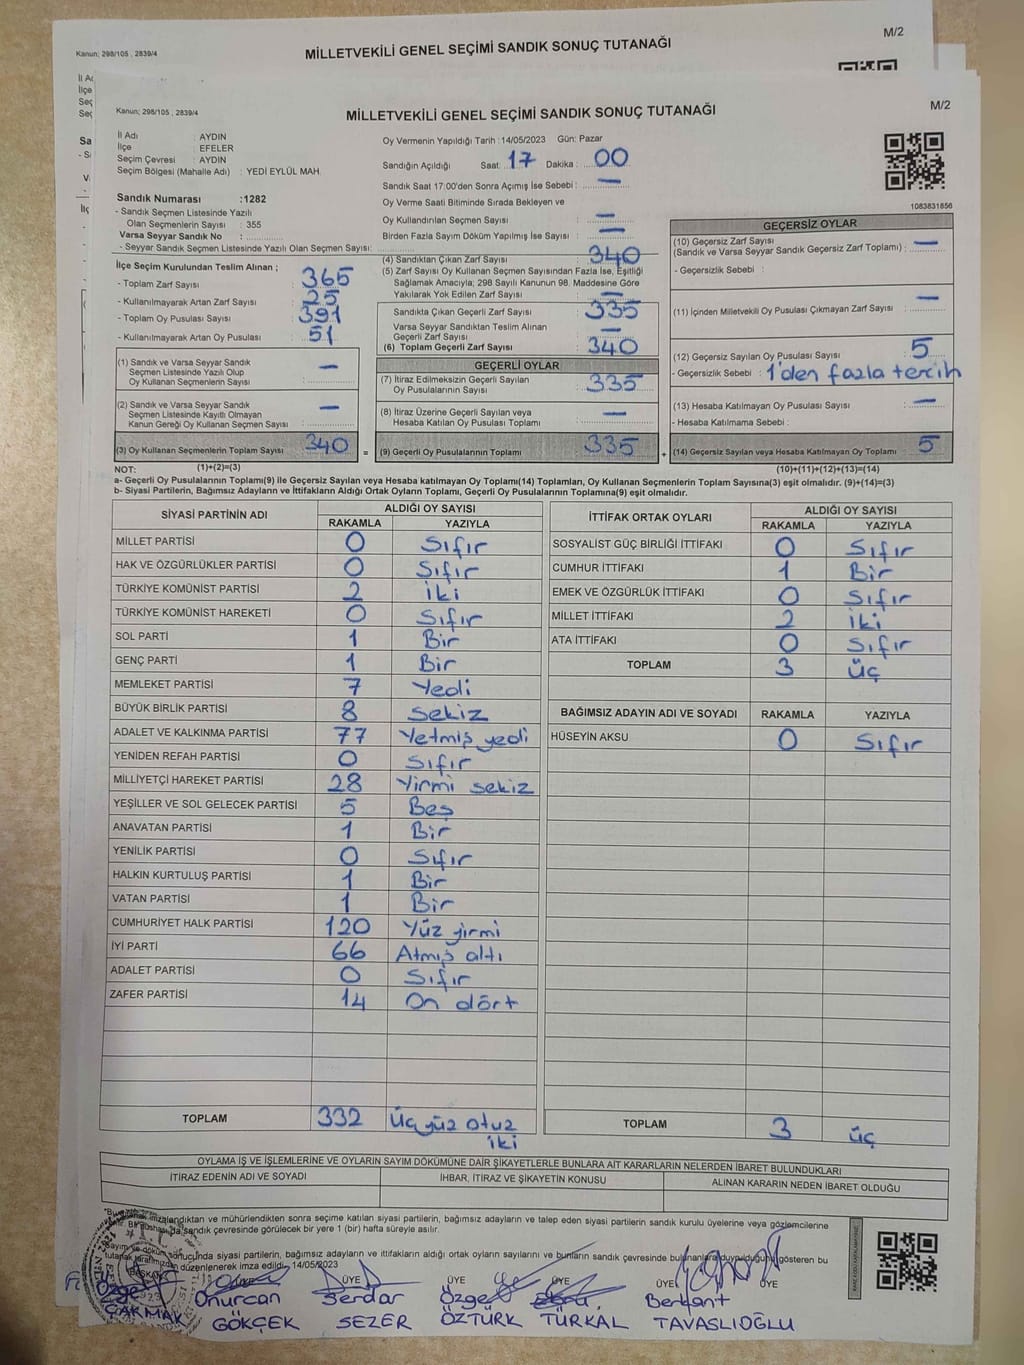 M/2
Kanun; 298/105 , 2839/4
MİLLETVEKİLİ GENEL SEÇİMİ SANDIK SONUÇ TUTANAĞI
İl Ad
İlçe
Seç
Seç
M/2
Kanun; 298/105 , 2839/4
MİLLETVEKİLİ GENEL SEÇİMİ SANDIK SONUÇ TUTANAĞI
İl Adı : AYDIN
İlçe : EFELER
Seçim Çevresi : AYDIN
Seçim Bölgesi (Mahalle Adı) : YEDİ EYLÜL MAH.
Sandık Numarası :1282
- Sandık Seçmen Listesinde Yazılı
Olan Seçmenlerin Sayısı : 355
Varsa Seyyar Sandık No :
- Seyyar Sandık Seçmen Listesinde Yazılı Olan Seçmen Sayısı:
Oy Vermenin Yapıldığı Tarih : 14/05/2023 Gün: Pazar
Sandığın Açıldığı Saat: 17 Dakika : 00
Sandık Saat 17:00'den Sonra Açılmış İse Sebebi : —
Oy Verme Saati Bitiminde Sırada Bekleyen ve
Oy Kullandırılan Seçmen Sayısı —
Birden Fazla Sayım Döküm Yapılmış İse Sayısı —
1083831856
İlçe Seçim Kurulundan Teslim Alınan ;
- Toplam Zarf Sayısı : 365
- Kullanılmayarak Artan Zarf Sayısı : 25
- Toplam Oy Pusulası Sayısı : 391
- Kullanılmayarak Artan Oy Pusulası : 51
(1) Sandık ve Varsa Seyyar Sandık
Seçmen Listesinde Yazılı Olup
Oy Kullanan Seçmenlerin Sayısı : —
(2) Sandık ve Varsa Seyyar Sandık
Seçmen Listesinde Kayıtlı Olmayan
Kanun Gereği Oy Kullanan Seçmen Sayısı : —
(3) Oy Kullanan Seçmenlerin Toplam Sayısı : 340
(4) Sandıktan Çıkan Zarf Sayısı : 340
(5) Zarf Sayısı Oy Kullanan Seçmen Sayısından Fazla İse, Eşitliği
Sağlamak Amacıyla; 298 Sayılı Kanunun 98. Maddesine Göre
Yakılarak Yok Edilen Zarf Sayısı : —
Sandıkta Çıkan Geçerli Zarf Sayısı : 335
Varsa Seyyar Sandıktan Teslim Alınan
Geçerli Zarf Sayısı : —
(6) Toplam Geçerli Zarf Sayısı : 340
GEÇERLİ OYLAR
(7) İtiraz Edilmeksizin Geçerli Sayılan
Oy Pusulalarının Sayısı : 335
(8) İtiraz Üzerine Geçerli Sayılan veya
Hesaba Katılan Oy Pusulası Toplamı : —
= (9) Geçerli Oy Pusulalarının Toplamı : 335
GEÇERSİZ OYLAR
(10) Geçersiz Zarf Sayısı
(Sandık ve Varsa Seyyar Sandık Geçersiz Zarf Toplamı) : —
- Geçersizlik Sebebi :
(11) İçinden Milletvekili Oy Pusulası Çıkmayan Zarf Sayısı : —
(12) Geçersiz Sayılan Oy Pusulası Sayısı : 5
- Geçersizlik Sebebi : 1'den fazla tercih
(13) Hesaba Katılmayan Oy Pusulası Sayısı : —
- Hesaba Katılmama Sebebi :
+ (14) Geçersiz Sayılan veya Hesaba Katılmayan Oy Toplamı : 5
NOT: (1)+(2)=(3) (10)+(11)+(12)+(13)=(14)
a- Geçerli Oy Pusulalarının Toplamı(9) ile Geçersiz Sayılan veya Hesaba katılmayan Oy Toplamı(14) Toplamları, Oy Kullanan Seçmenlerin Toplam Sayısına(3) eşit olmalıdır. (9)+(14)=(3)
b- Siyasi Partilerin, Bağımsız Adayların ve İttifakların Aldığı Ortak Oyların Toplamı, Geçerli Oy Pusulalarının Toplamına(9) eşit olmalıdır.
SİYASİ PARTİNİN ADI ALDIĞI OY SAYISI
RAKAMLA YAZIYLA
MİLLET PARTİSİ 0 Sıfır
HAK VE ÖZGÜRLÜKLER PARTİSİ 0 Sıfır
TÜRKİYE KOMÜNİST PARTİSİ 2 iki
TÜRKİYE KOMÜNİST HAREKETİ 0 Sıfır
SOL PARTİ 1 Bir
GENÇ PARTİ 1 Bir
MEMLEKET PARTİSİ 7 Yedi
BÜYÜK BİRLİK PARTİSİ 8 Sekiz
ADALET VE KALKINMA PARTİSİ 77 Yetmiş yedi
YENİDEN REFAH PARTİSİ 0 Sıfır
MİLLİYETÇİ HAREKET PARTİSİ 28 Yirmi sekiz
YEŞİLLER VE SOL GELECEK PARTİSİ 5 Beş
ANAVATAN PARTİSİ 1 Bir
YENİLİK PARTİSİ 0 Sıfır
HALKIN KURTULUŞ PARTİSİ 1 Bir
VATAN PARTİSİ 1 Bir
CUMHURİYET HALK PARTİSİ 120 Yüz yirmi
İYİ PARTİ 66 Atmış altı
ADALET PARTİSİ 0 Sıfır
ZAFER PARTİSİ 14 On dört
TOPLAM 332 Üç yüz otuz
iki
İTTİFAK ORTAK OYLARI ALDIĞI OY SAYISI
RAKAMLA YAZIYLA
SOSYALİST GÜÇ BİRLİĞİ İTTİFAKI 0 Sıfır
CUMHUR İTTİFAKI 1 Bir
EMEK VE ÖZGÜRLÜK İTTİFAKI 0 Sıfır
MİLLET İTTİFAKI 2 iki
ATA İTTİFAKI 0 Sıfır
TOPLAM 3 üç
BAĞIMSIZ ADAYIN ADI VE SOYADI RAKAMLA YAZIYLA
HÜSEYİN AKSU 0 Sıfır
TOPLAM 3 üç
OYLAMA İŞ VE İŞLEMLERİNE VE OYLARIN SAYIM DÖKÜMÜNE DAİR ŞİKAYETLERLE BUNLARA AİT KARARLARIN NELERDEN İBARET BULUNDUKLARI
İTİRAZ EDENİN ADI VE SOYADI İHBAR, İTİRAZ VE ŞİKAYETİN KONUSU ALINAN KARARIN NEDEN İBARET OLDUĞU
imzalandıktan ve mühürlendikten sonra seçime katılan siyasi partilerin, bağımsız adayların ve talep eden siyasi partilerin sandık kurulu üyelerine veya gözlemcilerine
sandık çevresinde görülecek bir yere 1 (bir) hafta süreyle asılır.
Sayım ve döküm sonucunda siyasi partilerin, bağımsız adayların ve ittifakların aldığı ortak oyların sayılarını ve bunların sandık çevresinde bulunanlara duyurulduğunu gösteren bu
tutanak tarafımızdan düzenlenerek imza edildi. 14/05/2023
BAŞKAN ÜYE ÜYE ÜYE ÜYE ÜYE ÜYE
Özge Onurcan Serdar Özge Ebru Berkant
ÇAKMAK GÖKÇEK SEZER ÖZTÜRK TÜRKAL TAVASLIOĞLU